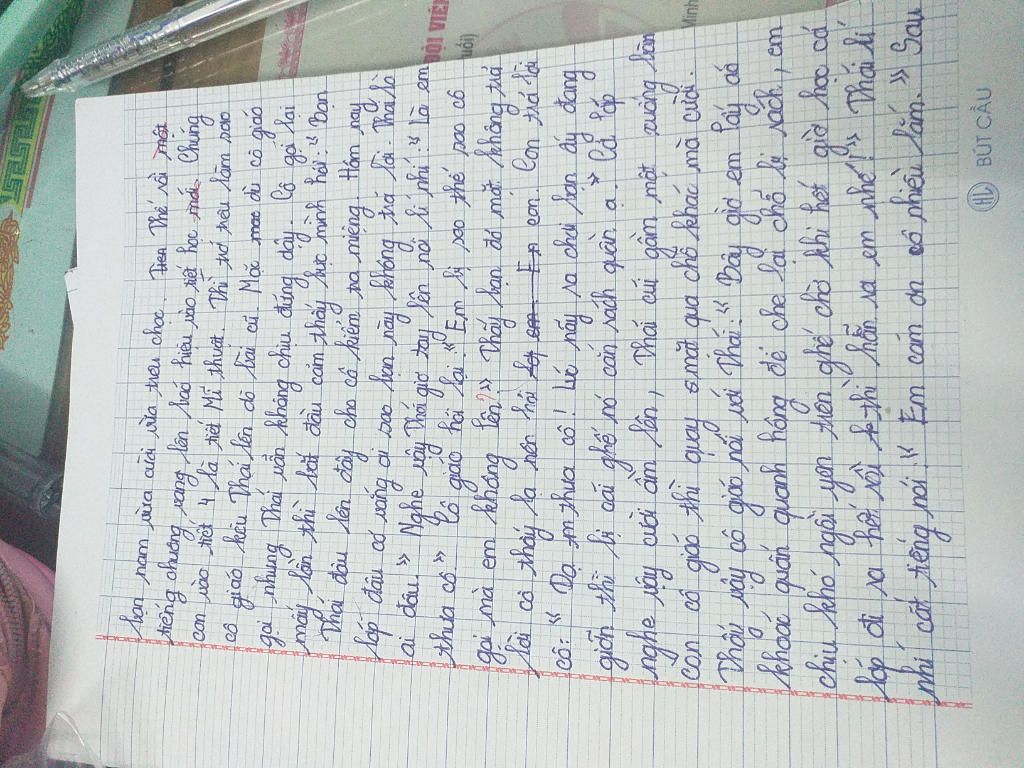 bạn nam vừa cười vừa trêu chọc. Thế rồi một
tiếng chuông vang lên báo hiệu vào tiết học mới. Chúng
con vào tiết 4 là tiết Mĩ thuật. Thì tự nhiên làm sao
cô giáo kêu Thái lên dò bài cũ. Mặc dù cô giáo
gọi nhưng Thái vẫn không chịu đứng dậy. Cô gọi lại
mấy lần thì bắt đầu cảm thấy bực mình hỏi: "Bạn
Thái đâu lên đây cho cô kiểm tra miệng. Hôm nay
lớp đâu có vắng ai sao bạn này không trả lời. Thái là
ai đâu." Nghe vậy Thái giơ tay lên nói lí nhí: "Là em
thưa cô" Cô giáo hỏi lại: "Em bị sao thế sao cô
gọi mà em không lên?" Thấy bạn đó mãi không trả
lời cô thấy lạ nên hỏi em. Con trả lời
cô: "Dạ thưa cô! Lúc nãy ra chơi bạn ấy đang
giỡn thì bị cái ghế nó cắn rách quần ạ." Cả lớp
nghe vậy cười ầm lên, Thái cúi gằm mặt xuống bàn
còn cô giáo thì quay mặt qua chỗ khác mà cười.
Thấy vậy cô giáo nói với Thái: "Bây giờ em lấy áo
khoác quấn quanh hông để che lại chỗ bị rách, em
chịu khó ngồi yên trên ghế chờ khi hết giờ học cả
lớp đi ra hết rồi thì hẵn ra em nhé!" Thái lí
nhí cất tiếng nói: "Em cảm ơn cô nhiều lắm." Sau
ĐỘI VIÊN
Minh
BÚT CẦU